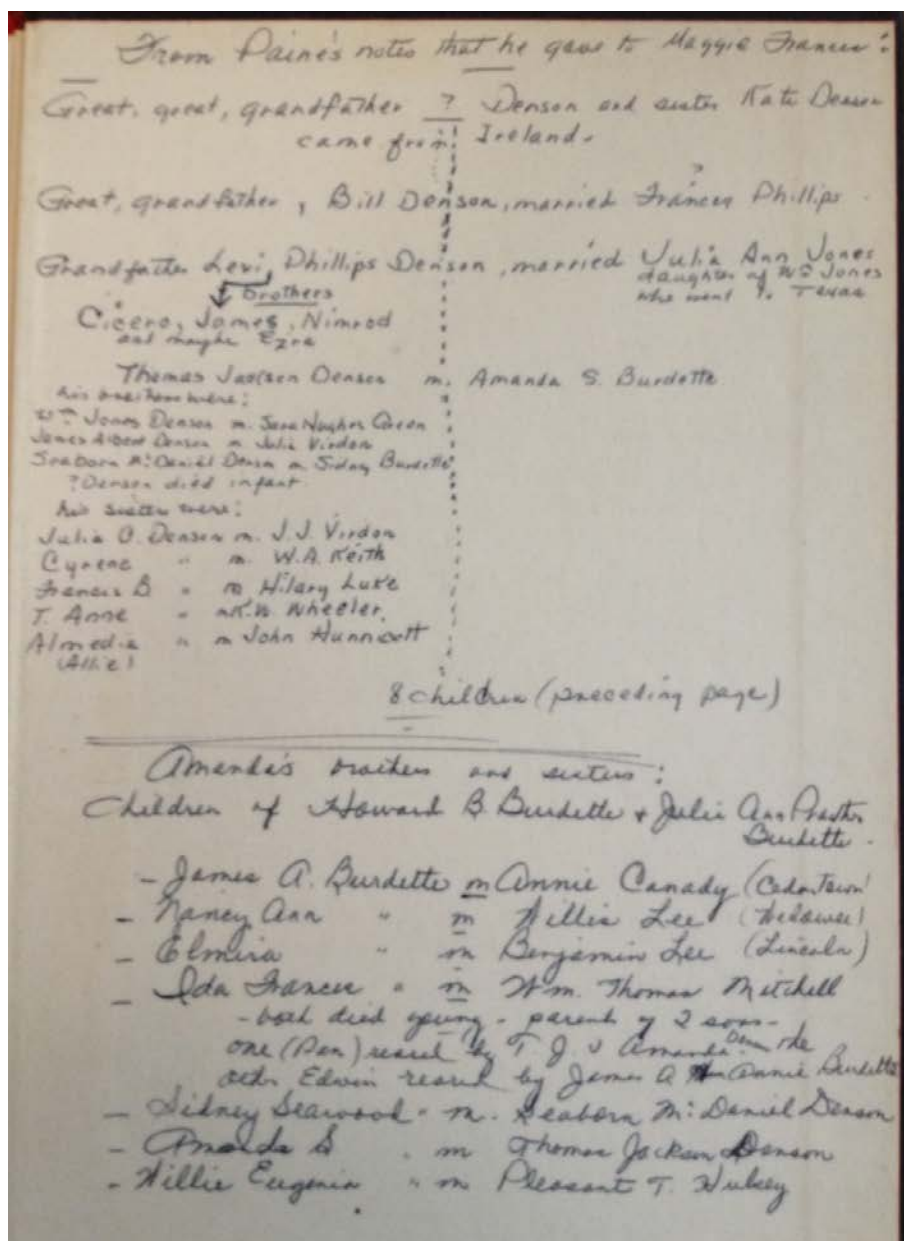 From Paine's notes that he gave to Maggie Frances:
Great, great, grandfather ? Denson and sister Kate Denson
came from Ireland.
?
Great, grandfather, Bill Denson, married Frances Phillips.
Grandfather Levi, Phillips Denson, married Julia Ann Jones
daughter of Wm Jones
who went to Texas
brothers
Cicero, James, Nimrod
and maybe Ezra
Thomas Jackson Denson m. Amanda S. Burdette
his brothers were:
Wm Jones Denson m. Sara Green
James Albert Denson m Julia Virdon
Seaborn McDaniel Denson m Sidney Burdette
? Denson died infant
his sisters were:
Julia C. Denson m. J.J. Virdon
Cyrene " m. W.A. Keith
Frances B " m Hilary Luke
T. Anne " m K.W. Wheeler
Almedia " m John Hunnicutt
(Allie)
8 children (preceding page)
Amanda's brothers and sisters:
Children of Howard B. Burdette & Julia Ann
Burdette.
- James A. Burdette m Annie Canady (Cedartown)
- Nancy Ann " m Willis Lee (Wedowee)
- Elmira " m Benjamin Lee (Lincoln)
- Ida Frances " m Wm. Thomas Mitchell
- both died young - parents of 2 sons -
one (Dan) reared by T J & Amanda Denson the
other Edwin reared by James A Annie Burdette
- Sidney Seawood " m. Seaborn McDaniel Denson
- Amanda S " m Thomas Jackson Denson
- Willie Eugenia " m Pleasant T. Hulsey